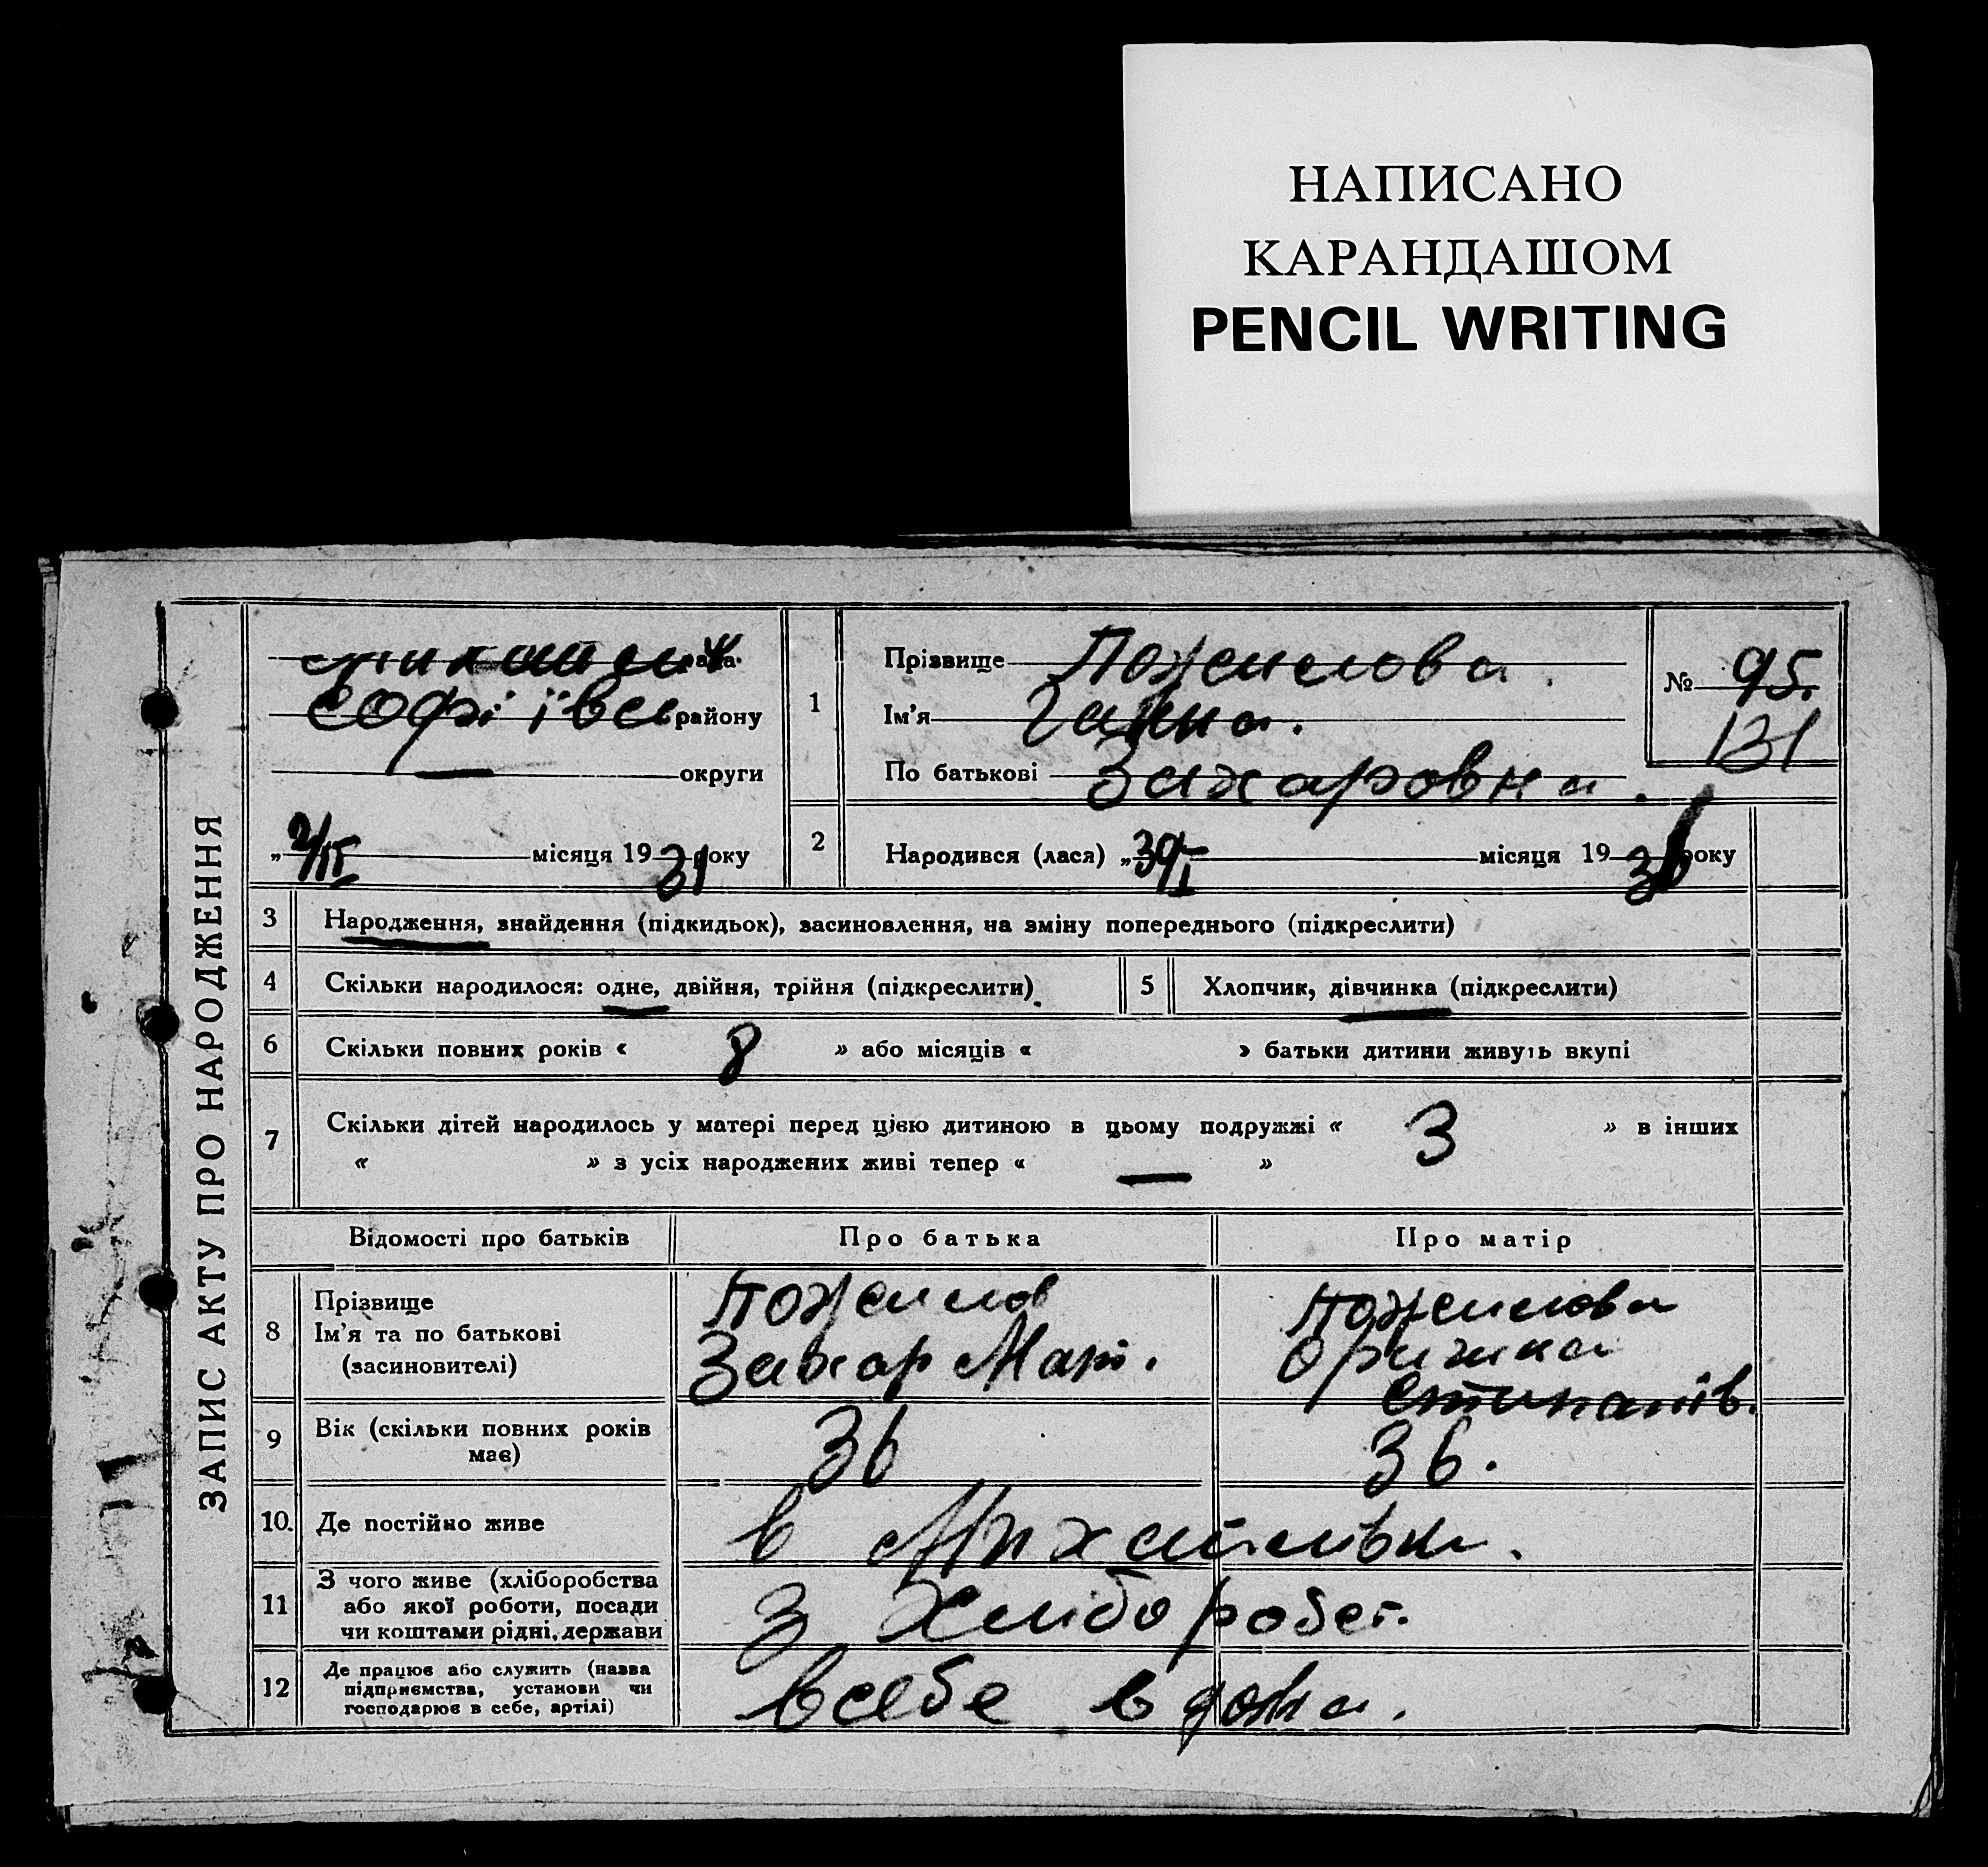 НАПИСАНО
КАРАНДАШОМ
PENCIL WRITING
ЗАПИС АКТУ ПРО НАРОДЖЕННЯ
Софіївськ району
— округи
„2/ІІ місяця 1931 року
1
Прізвище Пожилова.
Ім'я Ганна.
По батькові Захаровна.
№ 95.
131
2
Народився (лася) „30/I місяця 1931 року
3 Народження, знайдення (підкидьок), засиновлення, на зміну попереднього (підкреслити)
4 Скільки народилося: одне, двійня, трійня (підкреслити)
5 Хлопчик, дівчинка (підкреслити)
6 Скільки повних років « 8 » або місяців « » батьки дитини живуть вкупі
7 Скільки дітей народилось у матері перед цією дитиною в цьому подружжі « 3 » в інших
« » з усіх народжених живі тепер « — »
Відомості про батьків Про батька Про матір
8 Прізвище
Ім'я та по батькові
(засиновителі)
Пожилов
Захар Мат.
Пожилова
Оришка
Степанів.
9 Вік (скільки повних років
має)
36 36.
10. Де постійно живе в Михайлівки.
11 З чого живе (хліборобства
або якої роботи, посади
чи коштами рідні, держави
З Хліборобст.
12 Де працює або служить (назва
підприємства, установи чи
господарює в себе, артілі)
В себе в дома.